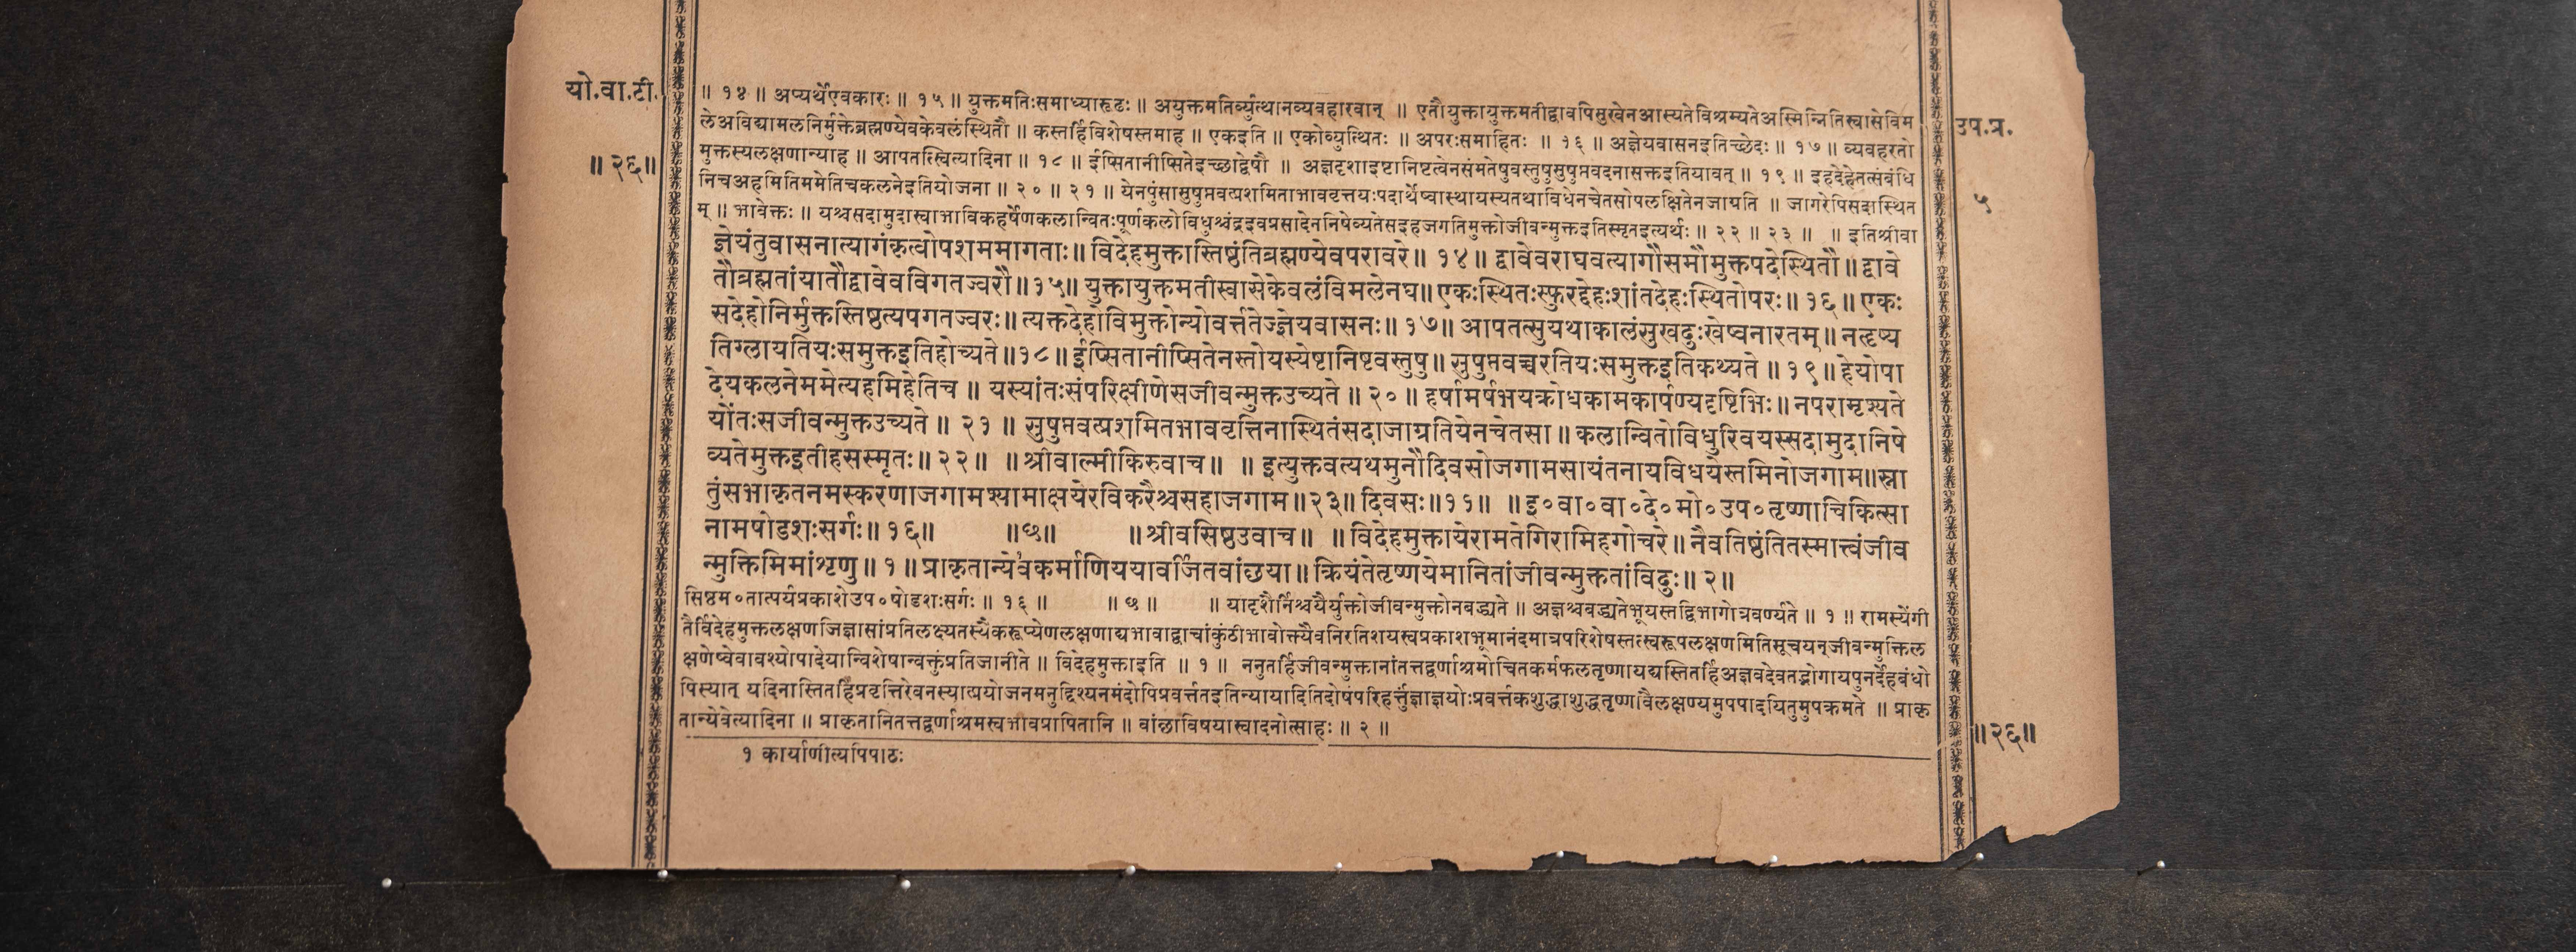 यो.वा.टी.
॥२६॥
॥ १४ ॥ अप्यर्थेएवकारः ॥ १५ ॥ युक्तमतिःसमाध्यारूढः ॥ अयुक्तमतिर्व्युत्थानव्यवहारवान् ॥ एतौयुक्तायुक्तमतीद्वावपिसुखेनआस्यतेविश्रम्यतेअस्मिन्नितिस्वासेविम
लेअविद्यामलनिर्मुक्तेब्रह्मण्येवकेवलंस्थितौ ॥ कस्तर्हिविशेषस्तमाह ॥ एकइति ॥ एकोव्युत्थितः ॥ अपरःसमाहितः ॥ १६ ॥ अज्ञेयवासनइतिच्छेदः ॥ १७ ॥ व्यवहरतो
मुक्तस्यलक्षणान्याह ॥ आपतत्स्वित्यादिना ॥ १८ ॥ ईप्सितानीप्सितेइच्छाद्वेषौ ॥ अज्ञदृशाइष्टानिष्टत्वेनसंमतेषुवस्तुषुसुषुप्तवदनासक्तइतियावत् ॥ १९ ॥ इहदेहेतत्संबंधि
निचअहमितिममेतिचकलनेइतियोजना ॥ २० ॥ २१ ॥ येनपुंसासुषुप्तवत्प्रशमिताभाववृत्तयःपदार्थेष्वास्थायस्यतथाविधेनचेतसोपलक्षितेनजाग्रति ॥ जागरेपिसदास्थित
म् ॥ भावेक्तः ॥ यश्चसदामुदास्वाभाविकहर्षेणकलान्वितःपूर्णकलोविधुश्चंद्रइवप्रसादेननिषेव्यतेसइहजगतिमुक्तोजीवन्मुक्तइतिस्मृतइत्यर्थः ॥ २२ ॥ २३ ॥ ॥ इतिश्रीवा
ज्ञेयंतुवासनात्यागंकृत्वोपशममागताः॥ विदेहमुक्तास्तिष्ठंतिब्रह्मण्येवपरावरे॥ १४॥ द्वावेवराघवत्यागौसमौमुक्तपदेस्थितौ॥ द्वावे
तौब्रह्मतांयातौद्वावेवविगतज्वरौ॥१५॥ युक्तायुक्तमतीस्वासेकेवलंविमलेनघ॥ एकःस्थितःस्फुरद्देहःशांतदेहःस्थितोपरः॥ १६॥ एकः
सदेहोनिर्मुक्तस्तिष्ठत्यपगतज्वरः॥ त्यक्तदेहोविमुक्तोन्योवर्त्ततेऽज्ञेयवासनः॥ १७॥ आपतत्सुयथाकालंसुखदुःखेष्वनारतम्॥ नत्दृष्य
तिग्लायतियःसमुक्तइतिहोच्यते॥१८॥ ईप्सितानीप्सितेनस्तोयस्येष्टानिष्टवस्तुषु॥ सुषुप्तवच्चरतियःसमुक्तइतिकथ्यते॥ १९॥ हेयोपा
देयकलनेममेत्यहमिहेतिच॥ यस्यांतःसंपरिक्षीणेसजीवन्मुक्तउच्यते॥ २०॥ हर्षामर्षभयक्रोधकामकार्पण्यदृष्टिभिः॥ नपरामृश्यते
योंतःसजीवन्मुक्तउच्यते॥ २१॥ सुषुप्तवत्प्रशमितभाववृत्तिनास्थितंसदाजाग्रतियेनचेतसा॥ कलान्वितोविधुरिवयस्सदामुदानिषे
व्यतेमुक्तइतीहसस्मृतः॥ २२॥ ॥श्रीवाल्मीकिरुवाच॥ ॥ इत्युक्तवत्यथमुनौदिवसोजगामसायंतनायविधयेस्तमिनोजगाम॥स्ना
तुंसभाकृतनमस्करणाजगामश्यामाक्षयेरविकरैश्चसहाजगाम॥२३॥ दिवसः॥११॥ ॥इ०वा०वा०दे०मो०उप०तृष्णाचिकित्सा
नामषोडशःसर्गः॥ १६॥ ॥छ॥ ॥श्रीवसिष्ठउवाच॥ ॥ विदेहमुक्तायेरामतेगिरामिहगोचरे॥ नैवतिष्ठंतितस्मात्त्वंजीव
न्मुक्तिमिमांशृणु॥ १॥ प्राकृतान्ये१वकर्माणिययावर्जितवांछया॥ क्रियंतेतृष्णयेमानितांजीवन्मुक्ततांविदुः॥ २॥
सिष्ठम०तात्पर्यप्रकाशेउप०षोडशःसर्गः ॥ १६ ॥ ॥ छ ॥ ॥ यादृशैर्निश्चयैर्युक्तोजीवन्मुक्तोनबद्ध्यते ॥ अज्ञश्चबद्ध्यतेभूयस्तद्विभागोत्रवर्ण्यते ॥ १ ॥ रामस्येंगी
तैर्विदेहमुक्तलक्षणजिज्ञासांप्रतिलक्ष्यतस्यैकरूप्येणलक्षणाद्यभावाद्वाचांकुंठीभावोक्त्यैवनिरतिशयस्वप्रकाशभूमानंदमात्रपरिशेषस्तत्स्वरूपलक्षणमितिसूचयन्जीवन्मुक्तिल
क्षणेष्वेवावश्योपादेयान्विशेषान्वक्तुंप्रतिजानीते ॥ विदेहमुक्ताइति ॥ १ ॥ ननुतर्हिजीवन्मुक्तानांतत्तद्वर्णाश्रमोचितकर्मफलतृष्णायद्यस्तितर्हिअज्ञवदेवतद्भोगायपुनर्देहबंधो
पिस्यात् यदिनास्तितर्हिप्रवृत्तिरेवनस्यात्प्रयोजनमनुद्दिश्यनमंदोपिप्रवर्त्ततइतिन्यायादितिदोषंपरिहर्त्तुंज्ञाज्ञयोःप्रवर्त्तकशुद्धाशुद्धतृष्णावैलक्षण्यमुपपादयितुमुपक्रमते ॥ प्राकृ
तान्येवेत्यादिना ॥ प्राकृतानितत्तद्वर्णाश्रमस्वभावप्रापितानि ॥ वांछाविषयास्वादनोत्साहः ॥ २ ॥
१ कार्याणीत्यपिपाठः
उप.प्र.
५
॥२६॥